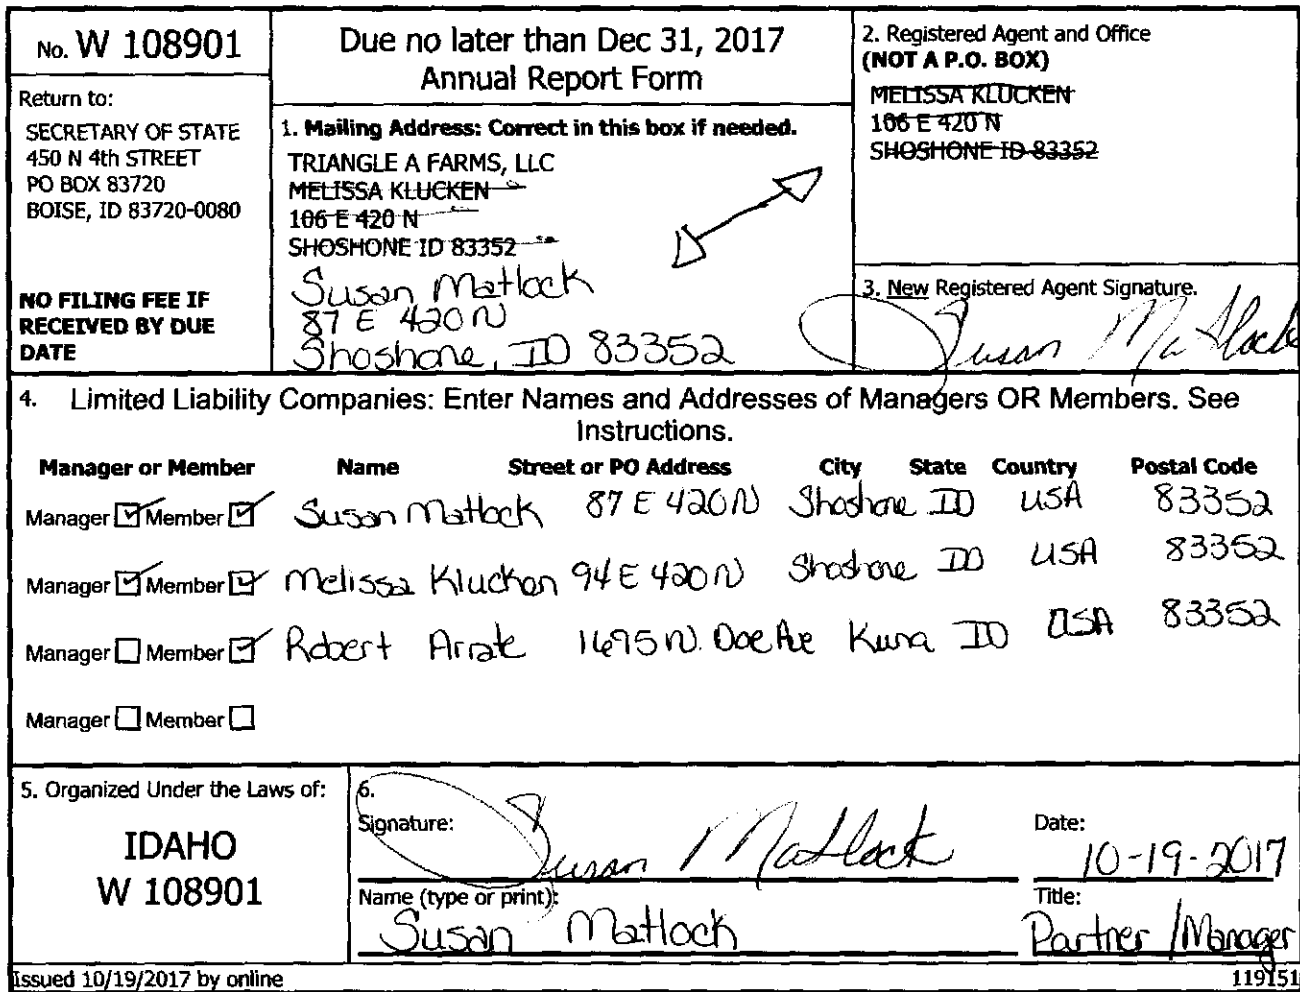 No. W 108901
Return to:
SECRETARY OF STATE
450 N 4th STREET
PO BOX 83720
BOISE, ID 83720-0080
NO FILING FEE IF
RECEIVED BY DUE
DATE
Due no later than Dec 31, 2017
Annual Report Form
1. Mailing Address: Correct in this box if needed.
TRIANGLE A FARMS, LLC
MELISSA KLUCKEN
106 E 420 N
SHOSHONE ID 83352
Susan Matlock
87 E 420 N
Shoshone, ID 83352
2. Registered Agent and Office
(NOT A P.O. BOX)
MELISSA KLUCKEN
106 E 420 N
SHOSHONE ID 83352
3. New Registered Agent Signature.
Susan Matlock
4. Limited Liability Companies: Enter Names and Addresses of Managers OR Members. See
Instructions.
Manager or Member Name Street or PO Address City State Country Postal Code
Manager Member Susan Matlock 87 E 420 N Shoshone ID USA 83352
Manager Member Melissa Klucken 94 E 420 N Shoshone ID USA 83352
Manager Member Robert Arrate 1695 N. Doe Ave Kuna ID USA 83352
Manager Member
5. Organized Under the Laws of:
IDAHO
W 108901
6.
Signature: Susan Matlock
Date: 10-19-2017
Name (type or print): Susan Matlock
Title: Partner / Manager
Issued 10/19/2017 by online
119151